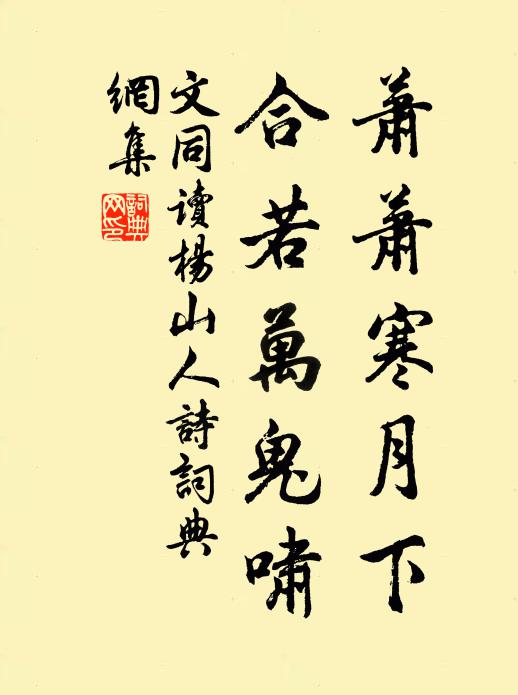 蕭蕭寒月下
合若萬鬼嘯
文同讀楊山人詩詞典
網集
詞典
网印